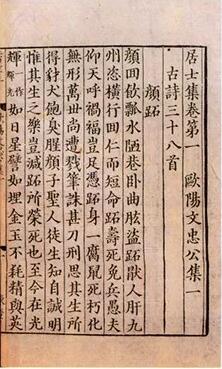 居士集卷第一 歐陽文忠公集一
古詩三十八首
顏跖
顏回飲瓢水陋巷卧曲肱盜跖猒人肝九
州恣橫行回仁而短命跖壽死免兵愚夫
仰天呼禍福豈足憑跖身一腐鼠死朽化
無形萬世尚遭戮筆誅甚刀刑思其生所
得豺犬飽臭腥顏子聖人徒生知自誠明
惟其生之樂豈減跖所榮死也至今在光
輝一作輝光如日星譬如埋金玉不耗精與英